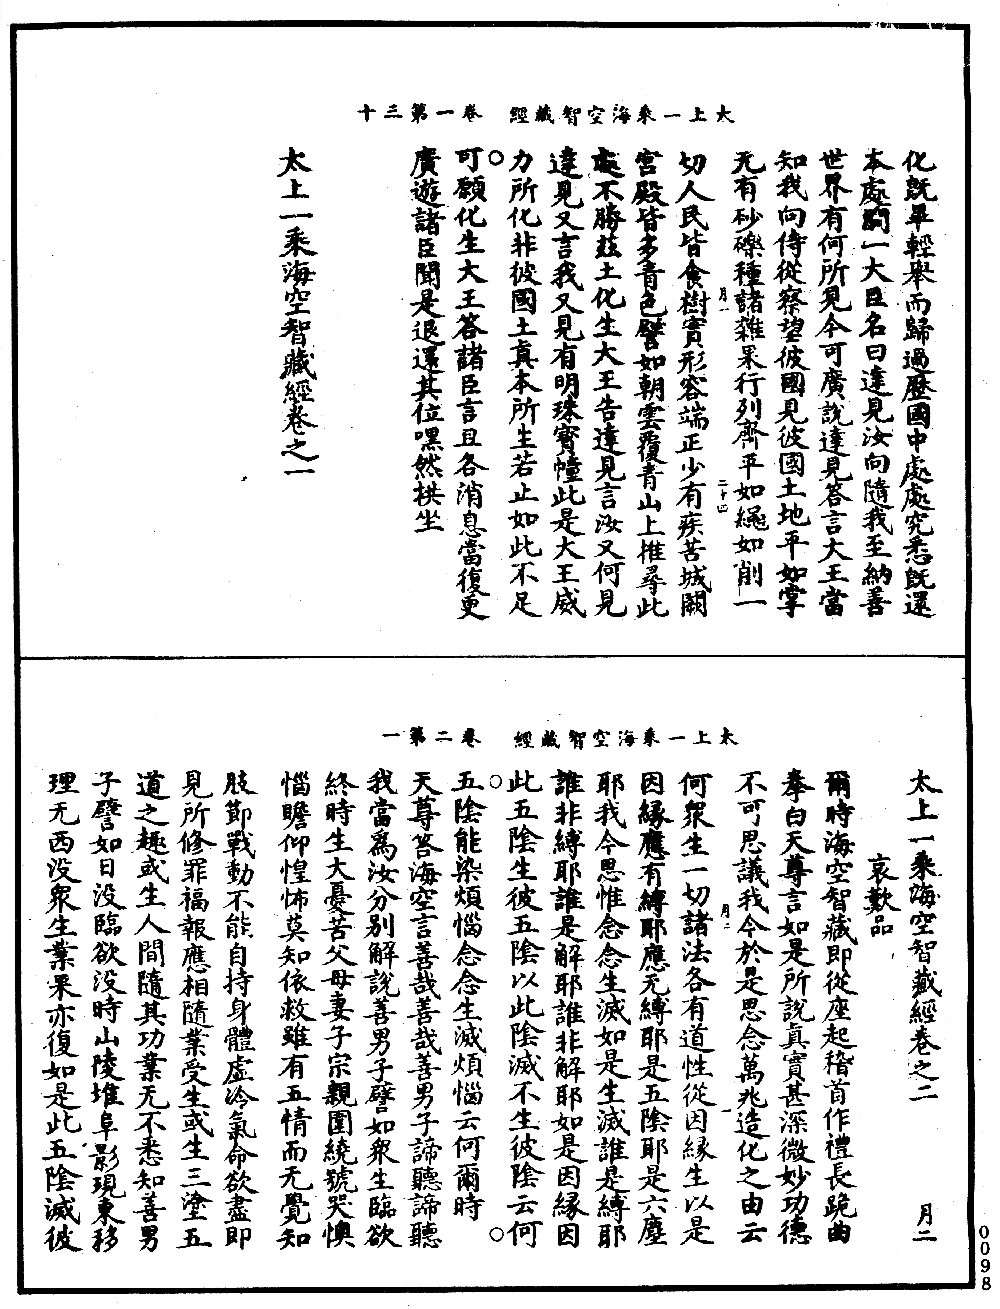 太上一乘海空智藏經　卷一第三十
化旣畢輕舉而歸過歷國中處處究悉旣還
本處問一大臣名曰達見汝向隨我至納善
世界有何所見今可廣說達見答言大王當
知我向侍從察望彼國見彼國土地平如掌
无有砂礫種諸雜果行列齊平如繩如削一
月一
二十四
切人民皆食樹實形容端正少有疾苦城闕
宮殿皆多青色譬如朝雲覆青山上推尋此
處不勝茲土化生大王告達見言汝又何見
達見又言我又見有明珠寶幢此是大王威
力所化非彼國土真本所生若止如此不足
○
可願化生大王答諸臣言且各消息當復更
廣遊諸臣聞是退還其位嘿然拱坐
太上一乘海空智藏經卷之一
太上一乘海空智藏經　卷二第一
太上一乘海空智藏經卷之二　月二
哀歎品
爾時海空智藏即從座起稽首作禮長跪曲
拳白天尊言如是所說真實甚深微妙功德
不可思議我今於是思念萬兆造化之由云
月二
一
何衆生一切諸法各有道性從因緣生以是
因緣應有縛耶應无縛耶是五陰耶是六塵
耶我今思惟念念生滅如是生滅誰是縛耶
誰非縛耶誰是解耶誰非解耶如是因緣因
此五陰生彼五陰以此陰滅不生彼陰云何
○
五陰能染煩惱念念生滅煩惱云何爾時
○
天尊答海空言善哉善哉善男子諦聽諦聽
我當爲汝分別解說善男子譬如衆生臨欲
終時生大憂苦父母妻子宗親圍繞號哭懊
惱瞻仰惶怖莫知依救雖有五情而无覺知
肢節戰動不能自持身體虛冷氣命欲盡即
見所修罪福報應相隨業受生或生三塗五
道之趣或生人間隨其功業无不悉知善男
子譬如日没臨欲没時山陵堆阜影現東移
理无西没衆生業果亦復如是此五陰滅彼
0098